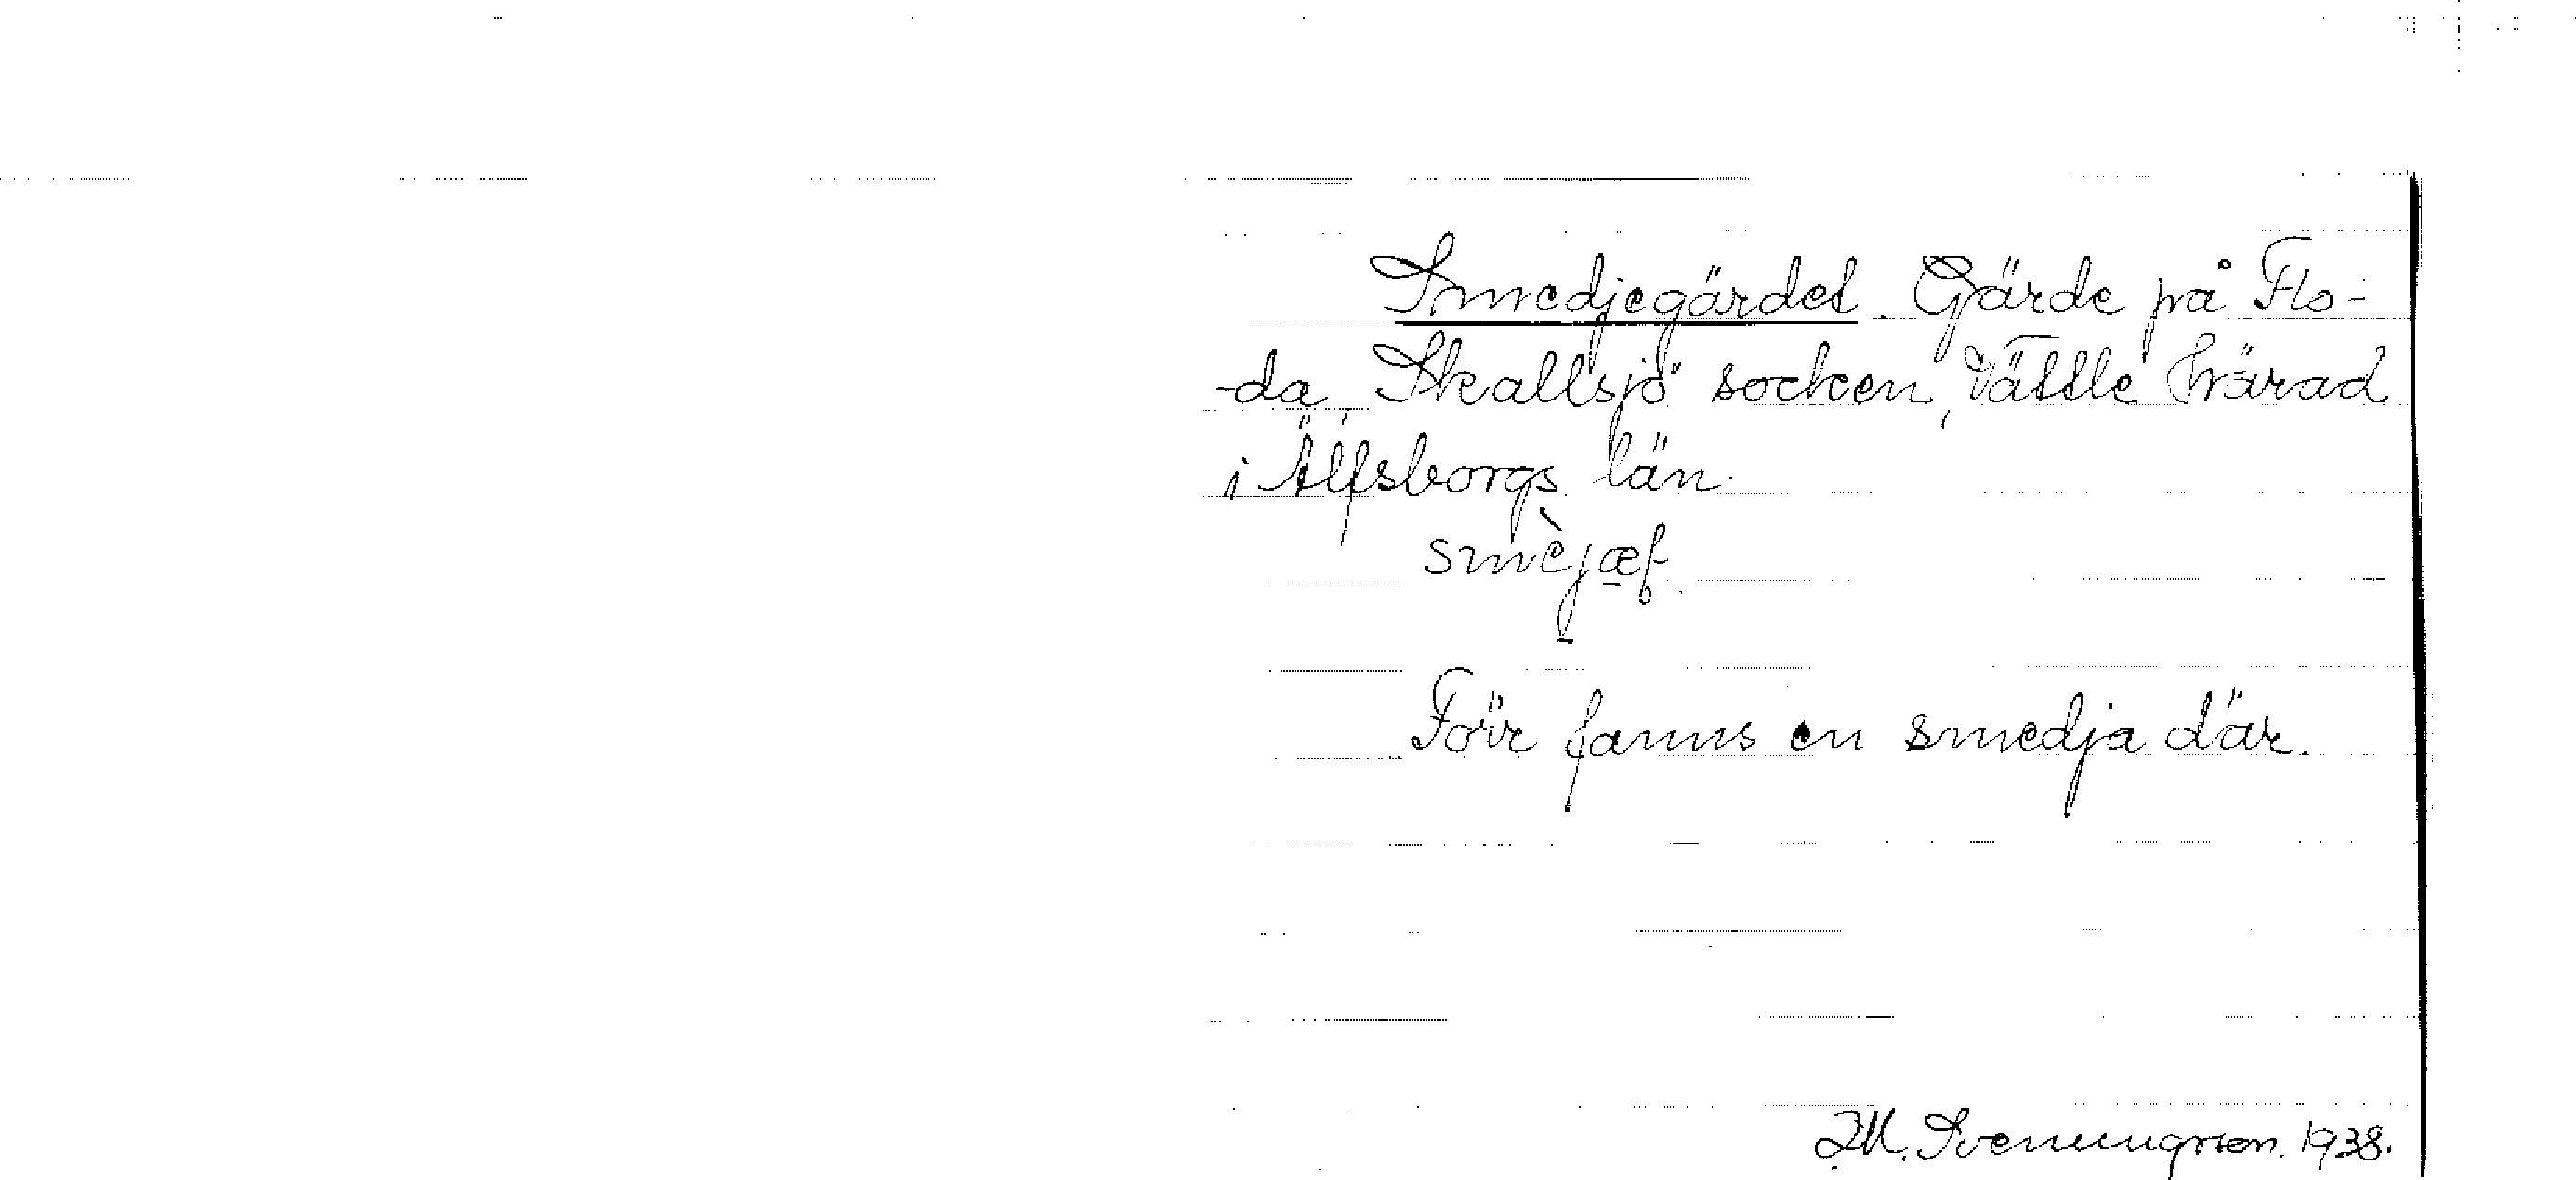 Smedjegärdet. Gärde på Flo-
-da, Skallsjö socken, Vättle härad
i Älfsborgs län.
smèjæ
Förr fanns en smedja där.
M. Svenungsson. 1938.